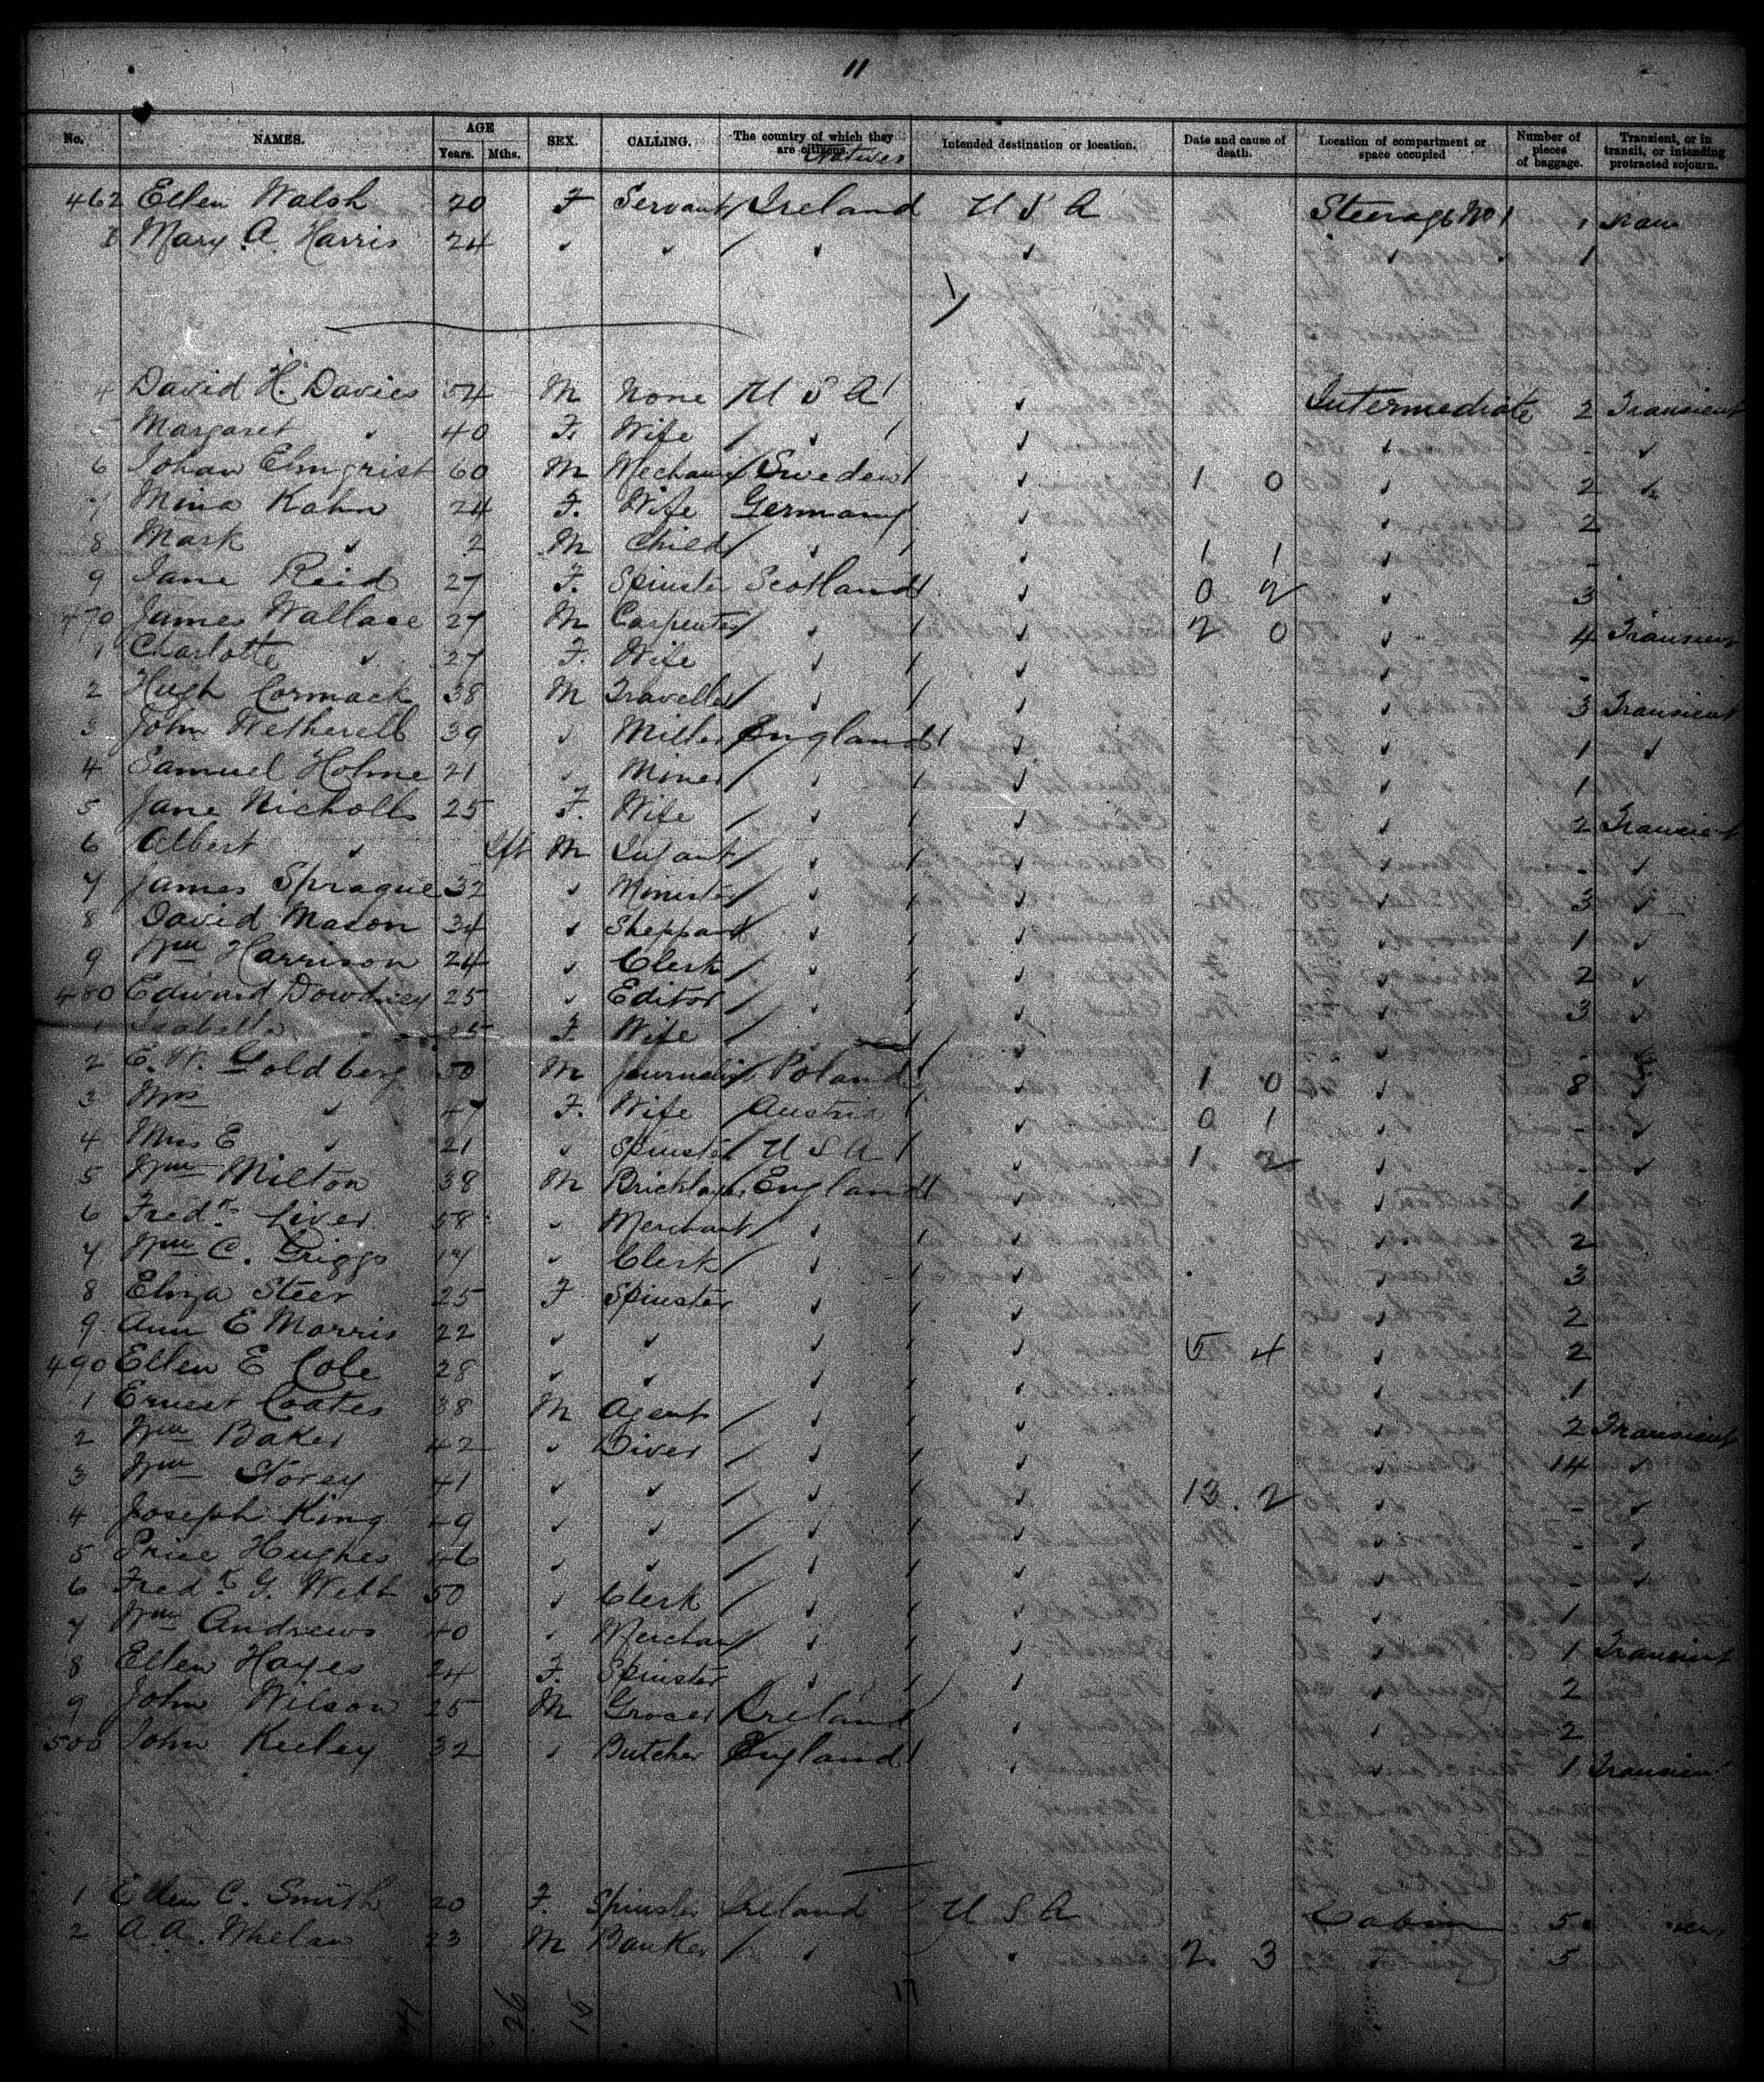 11
No. NAMES. AGE Years. Mths. SEX. CALLING. The country of which they are citizens. Natives Intended destination or location. Date and cause of death. Location of compartment or space occupied Number of pieces of baggage. Transient, or in transit, or intending protracted sojourn.
462 Ellen Walsh 20 F Servant Ireland U S A Steerage No 1 1
Mary A. Harris 24 ✓ ✓ ✓ ✓ ✓ 1
4 David H. Davies 54 M None U S A ✓ Intermediate 2 Transient
Margaret ✓ 40 F. Wife ✓ ✓ ✓ - ✓
6 Johan Elmgrist 60 M Mechanic Sweden ✓ 1 0 ✓ 2 ✓
7 Mina Kahn 24 F. Wife Germany ✓ ✓ 2
8 Mark ✓ 2 M Child ✓ ✓ 1 1 ✓ -
9 Jane Reid 27 F. Spinster Scotland ✓ 0 2 ✓ 3
470 James Wallace 27 M Carpenter ✓ ✓ 2 0 ✓ 4 Transient
1 Charlotte ✓ 27 F. Wife ✓ ✓ ✓ -
2 Hugh Cormack 38 M Traveller ✓ ✓ ✓ 3 Transient
3 John Wetherell 39 ✓ Miller England ✓ ✓ 1 ✓
4 Samuel Holme 21 ✓ Miner ✓ ✓ ✓ 1
5 Jane Nicholls 25 F. Wife ✓ ✓ ✓ 2 Transient
6 Albert ✓ Ift M Infant ✓ ✓ ✓ - ✓
7 James Sprague 32 ✓ Minister ✓ ✓ ✓ 3 ✓
8 David Mason 34 ✓ Sheppard ✓ ✓ ✓ 1 ✓
9 Wm Harrison 24 ✓ Clerk ✓ ✓ ✓ 2 ✓
480 Edward Dowdney 25 ✓ Editor ✓ ✓ ✓ 3 ✓
1 Isabella ✓ F Wife ✓ ✓ ✓ -
2 E. W. Goldberg 50 M Journalist Poland ✓ 1 0 ✓ 8 ✓
3 Mrs ✓ 47 F. Wife Austria ✓ 0 1 ✓ - ✓
4 Miss E ✓ 21 ✓ Spinster U S A ✓ 1 2 ✓ - ✓
5 Wm Milton 38 M Bricklayer England ✓ ✓ 1
6 Fredk Liver 58 ✓ Merchant ✓ ✓ ✓ 2
7 Wm C. Griggs 17 ✓ Clerk ✓ ✓ ✓ 3
8 Eliza Steer 25 F Spinster ✓ ✓ ✓ 2
9 Ann E Morris 22 ✓ ✓ ✓ ✓ 5 4 ✓ 2
490 Ellen E Cole 28 ✓ ✓ ✓ ✓ ✓ 1
1 Ernest Coates 38 M Agent ✓ ✓ ✓ 2 Transient
2 Wm Baker 42 ✓ Diver ✓ ✓ ✓ 14 ✓
3 Wm Storey 41 ✓ ✓ ✓ ✓ 13. 2 ✓ - ✓
4 Joseph King 49 ✓ ✓ ✓ ✓ ✓ - ✓
5 Price Hughes 46 ✓ ✓ ✓ ✓ ✓ - ✓
6 Fredk G. Webb 50 ✓ Clerk ✓ ✓ ✓ 1
7 Wm Andrews 40 ✓ Merchant ✓ ✓ ✓ 1 Transient
8 Ellen Hayes 24 F. Spinster ✓ ✓ ✓ 2
9 John Wilson 25 M Grocer Ireland ✓ ✓ 2
500 John Keeley 32 ✓ Butcher England ✓ ✓ 1 Transient
1 Ellen C. Smith 20 F. Spinster Ireland U S A Cabin 5
2 A. A. Whelan 23 M Banker ✓ ✓ 2 3 ✓ 5
41 26 15 17